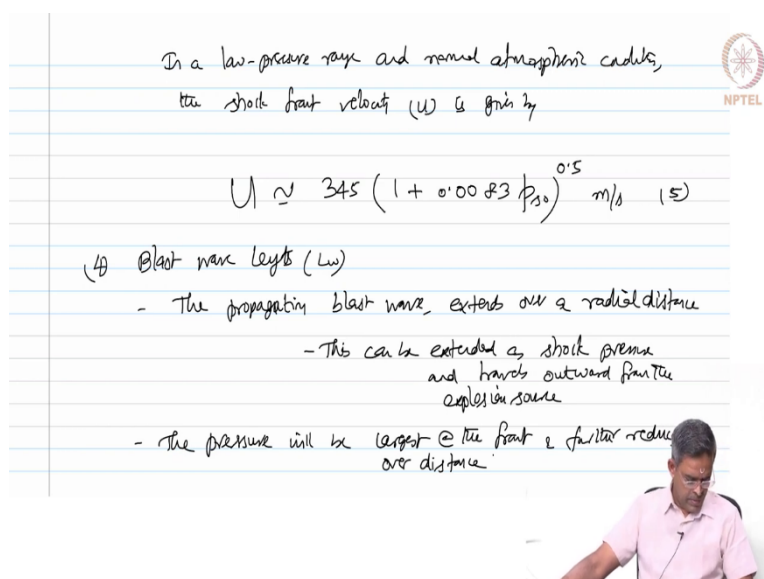 In a low-pressure range and normal atmospheric conditions,
NPTEL
the shock front velocity (U) is given by
U ≃ 345 (1 + 0.0083 pso)^0.5 m/s (5)
(4) Blast wave length (Lw)
- The propagating blast wave, extends over a radial distance
- This can be extended as shock pressure
and travels outward from the
explosion source
- The pressure will be largest @ the front & further reduc
over distance